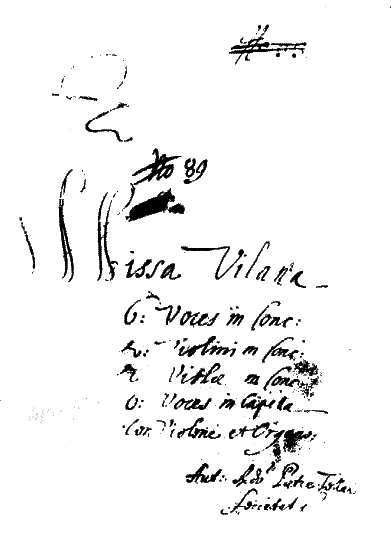 No 89
Missa Vilana
6: Voces in Conc:
2: Violini in Conc:
2 Violae in Conc:
6: Voces in Capella
Con Violone et Organo:
Aut: Patre
Societatis